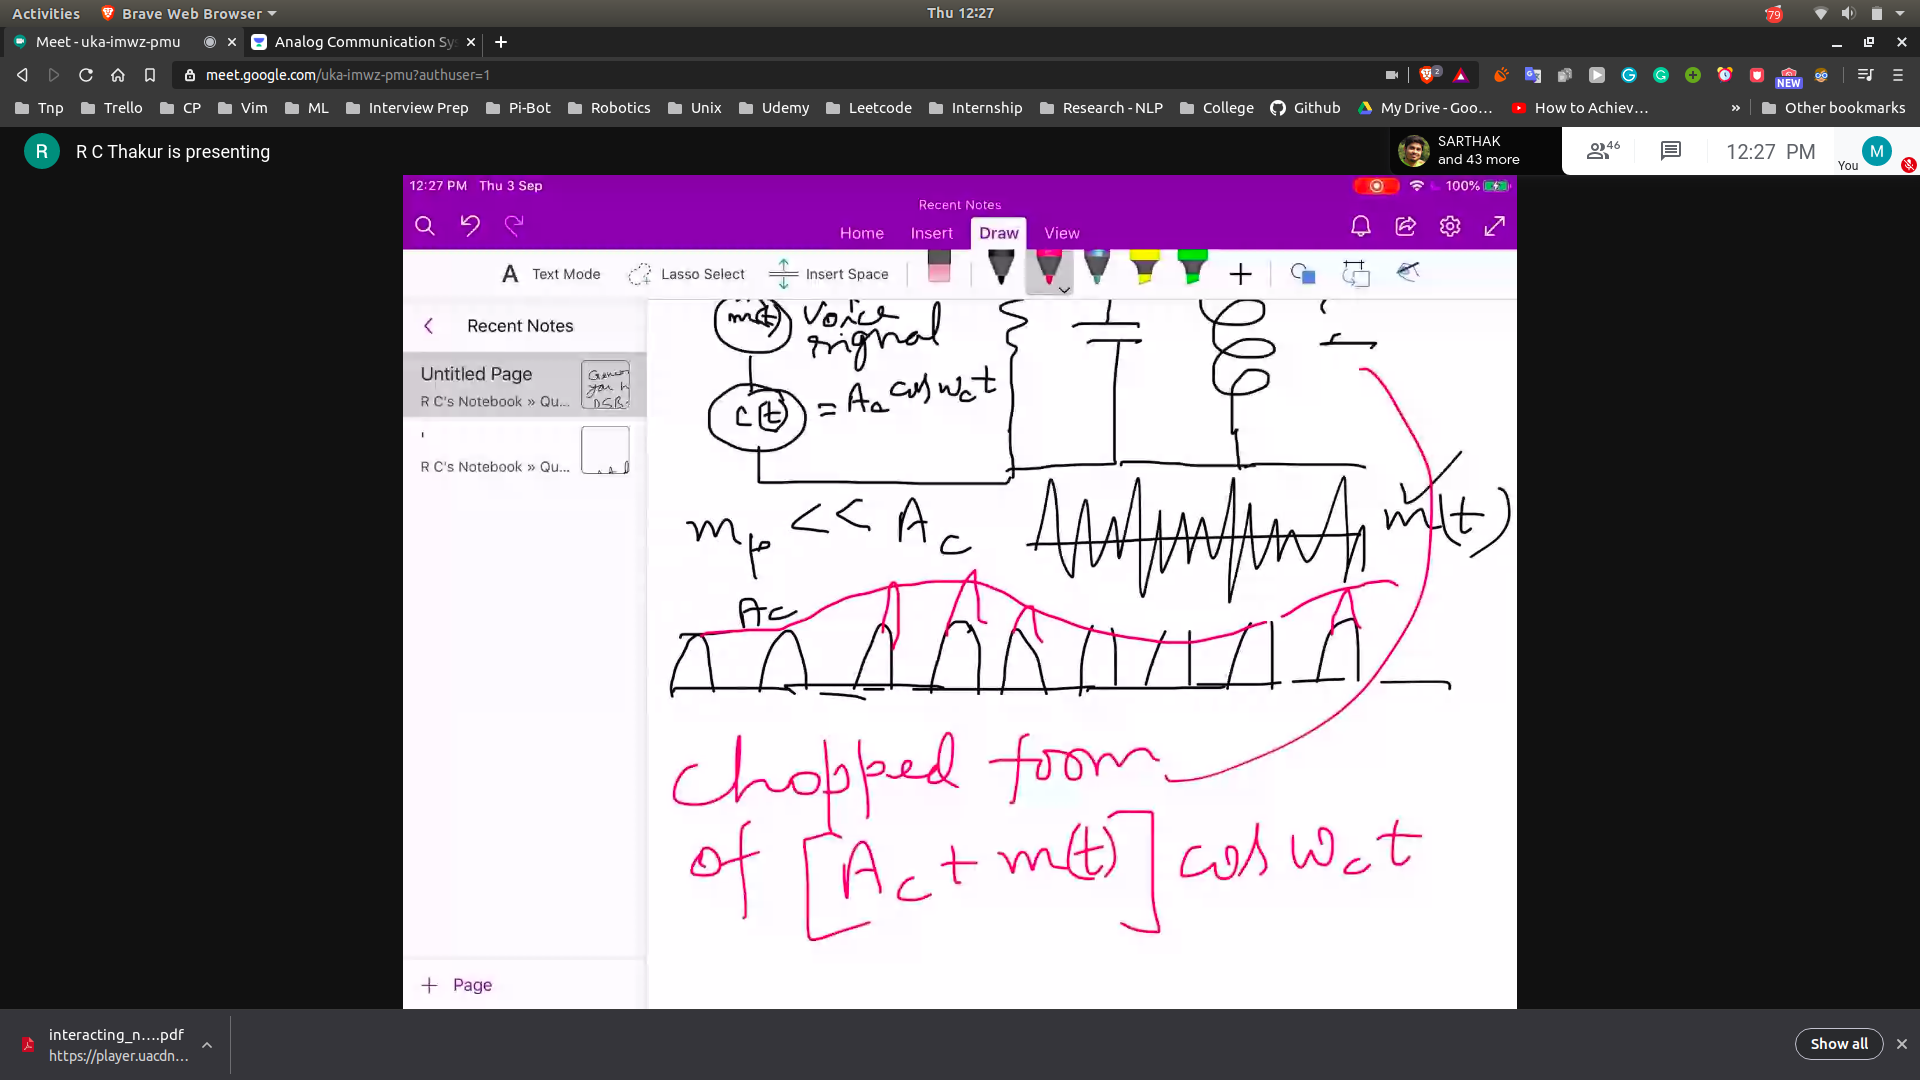 Activities
Brave Web Browser
Thu 12:27
79
Meet - uka-imwz-pmu
Analog Communication Sy
meet.google.com/uka-imwz-pmu?authuser=1
2
NEW
Tnp
Trello
CP
Vim
ML
Interview Prep
Pi-Bot
Robotics
Unix
Udemy
Leetcode
Internship
Research - NLP
College
Github
My Drive - Goo...
How to Achiev...
»
Other bookmarks
R
R C Thakur is presenting
SARTHAK
and 43 more
46
12:27 PM
You
M
12:27 PM Thu 3 Sep
100%
Recent Notes
Home
Insert
Draw
View
A Text Mode
Lasso Select
Insert Space
Recent Notes
Untitled Page
R C's Notebook » Qu...
R C's Notebook » Qu...
+ Page
m(t) voice
signal
c(t) = Ac cos wc t
mp << Ac
m(t)
Ac
chopped form
of [Ac + m(t)] cos wc t
interacting_n....pdf
https://player.uacdn...
Show all